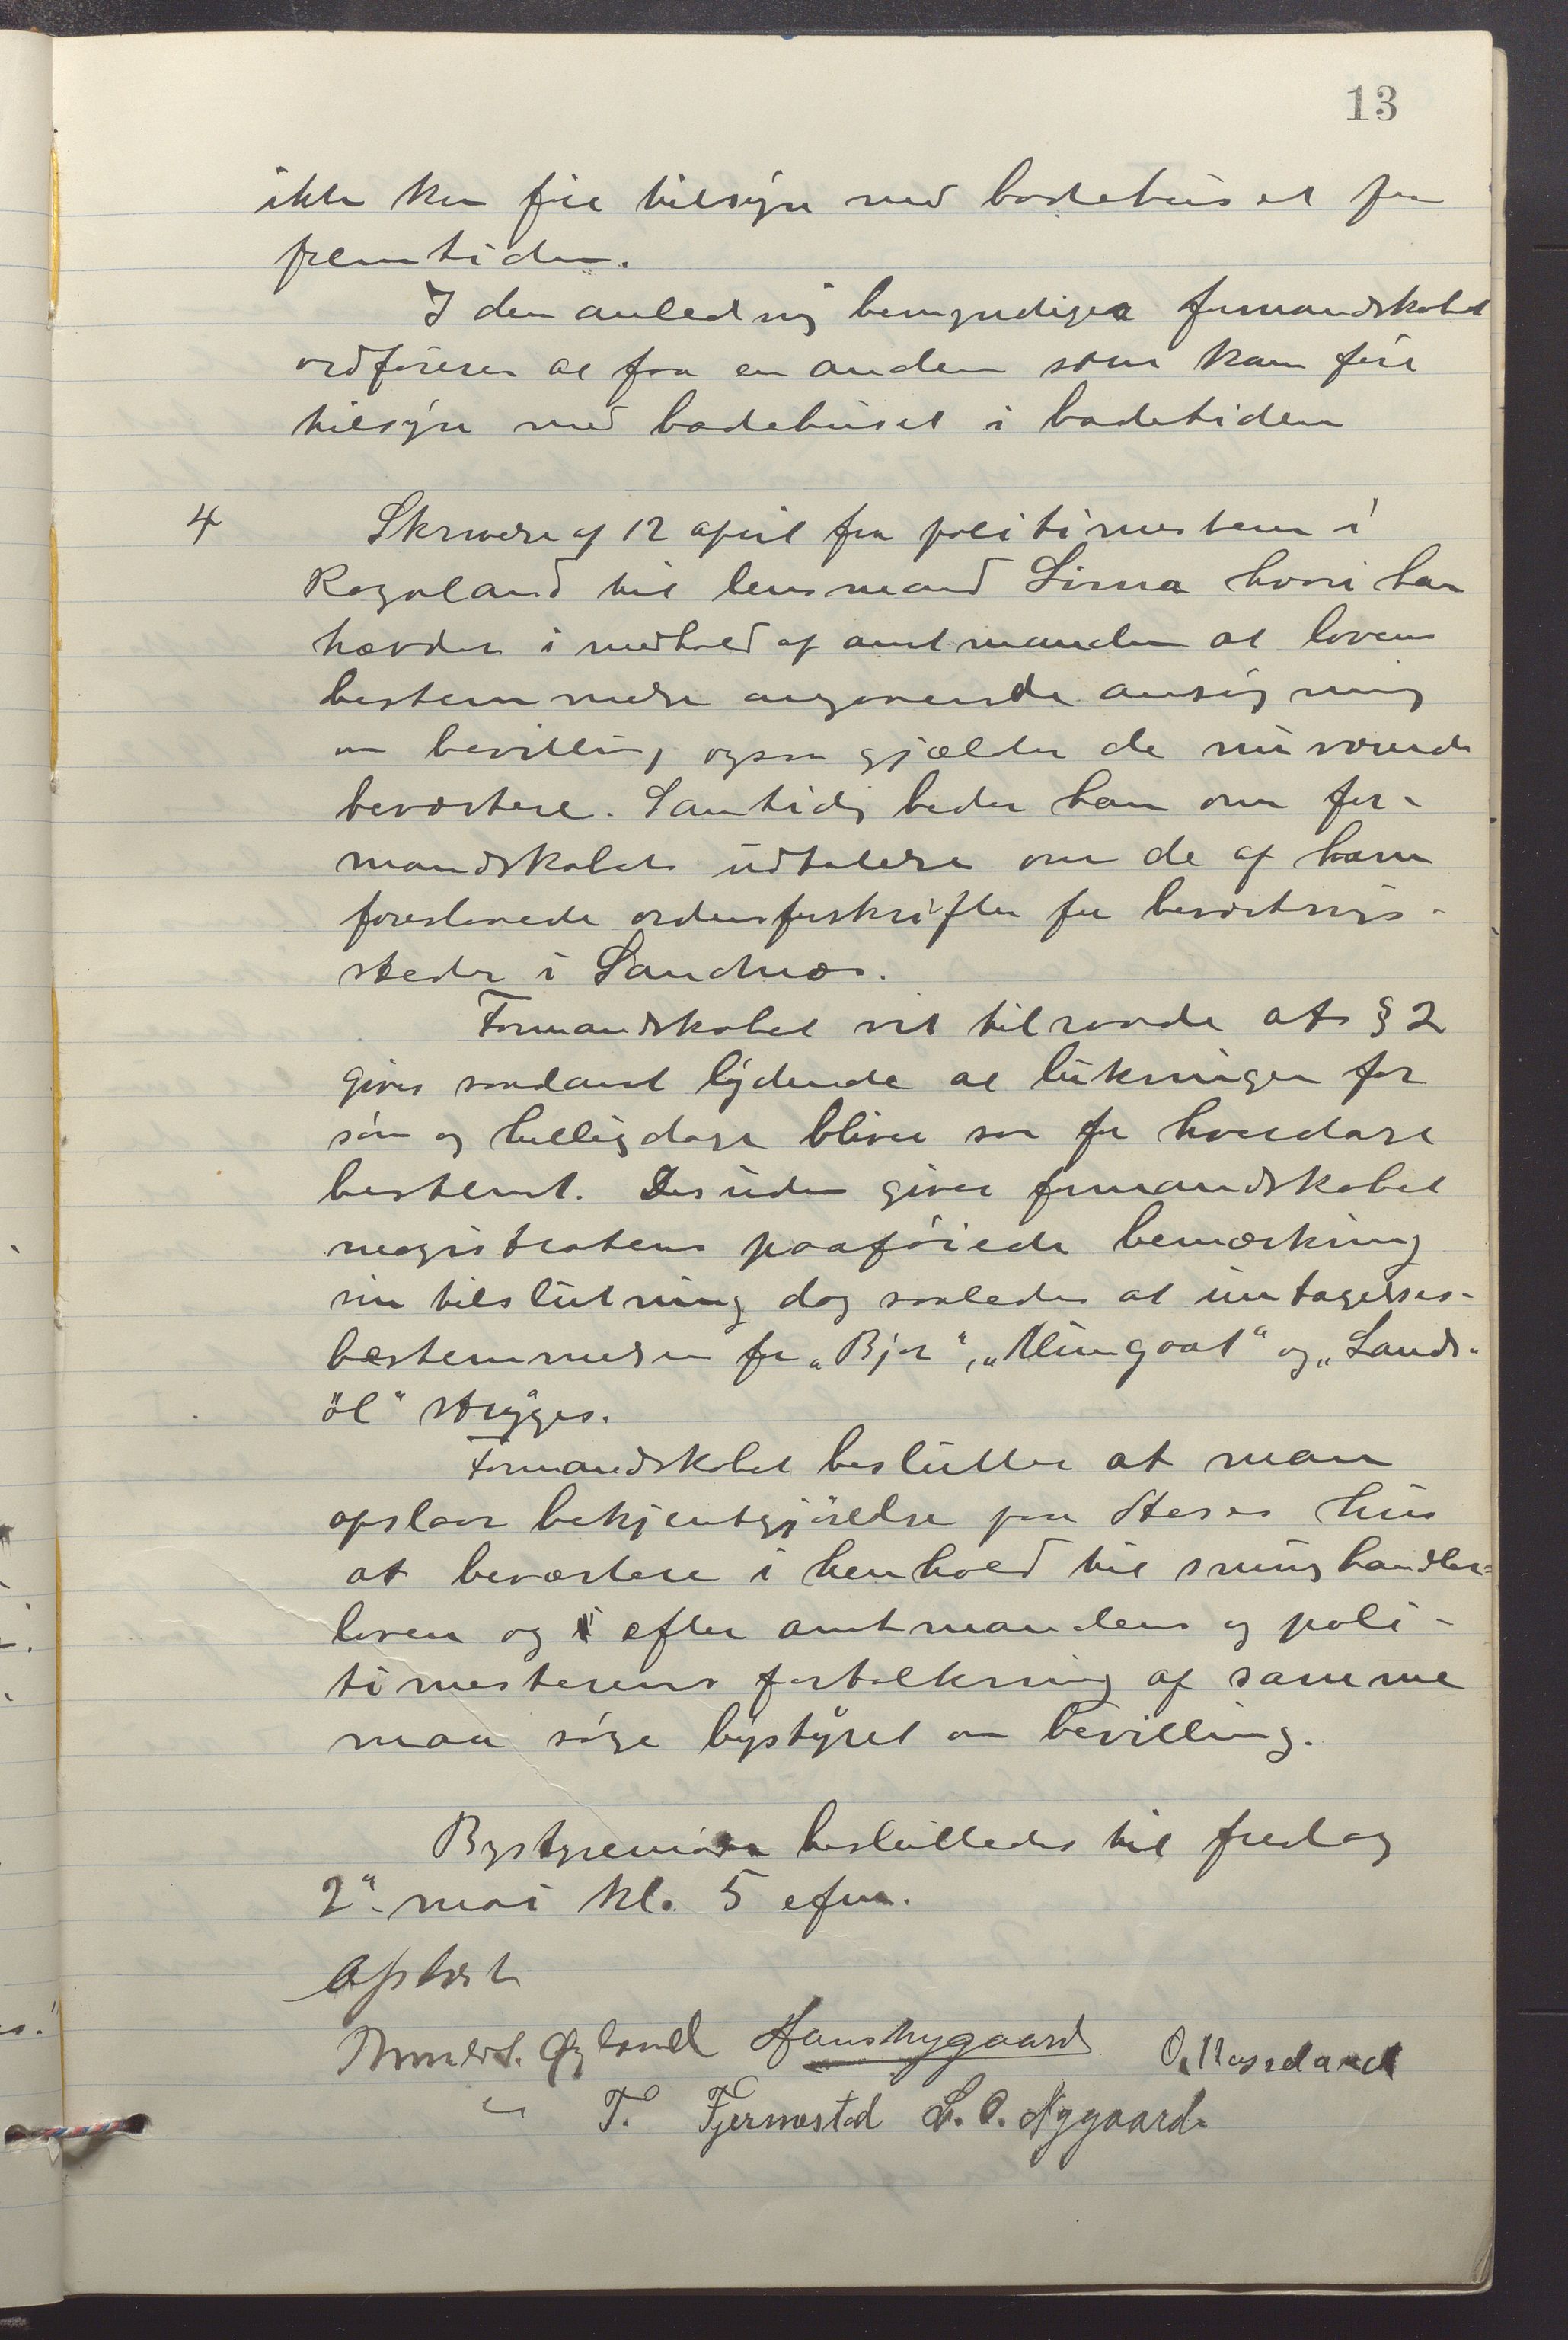 13
ikke kan føre tilsyn med badehuset for
fremtiden.
I den anledning bemyndiges formandskabet
ordføreren at faa en anden som kan føre
tilsyn med badehuset i badetiden
4 Skrivelse af 12 april fra politimesteren i
Rogaland til lensmand Sirna hvori han
hævder i medhold af amtmanden at lovens
bestemmelse angaaende ansøgning
om bevilling ogsaa gjælder de nuværende
beværtere. Samtidig beder han om for-
mandskabets udtalelse om de af ham
foreslaaede ordensforskrifter for beværtnings-
steder i Sandnæs.
Formandskabet vil tilraade at § 2
gives saadant lydende at lukningen for
søn og helligdage bliver som for hverdage
bestemt. Desuden giver formandskabet
magistratens paaføiede bemærkning
sin tilslutning dog saaledes at undtagelses-
bestemmelsen for „Bjor", „Mungaat" og „Lands-
øl" stryges.
Formandskabet beslutter at man
opslaar bekjentgjørelse paa Hæses hus
at beværtere i henhold til smughandler-
loven og efter amtmandens og poli-
timesterens fortolkning af samme
maa søge bystyret om bevilling.
Bystyremøde besluttedes til fredag
2" mai kl. 5 efm.
Oplæst
Øgland Hans Nygaard O. Hasseland
T. Fjermestad L. O. Nygaard.